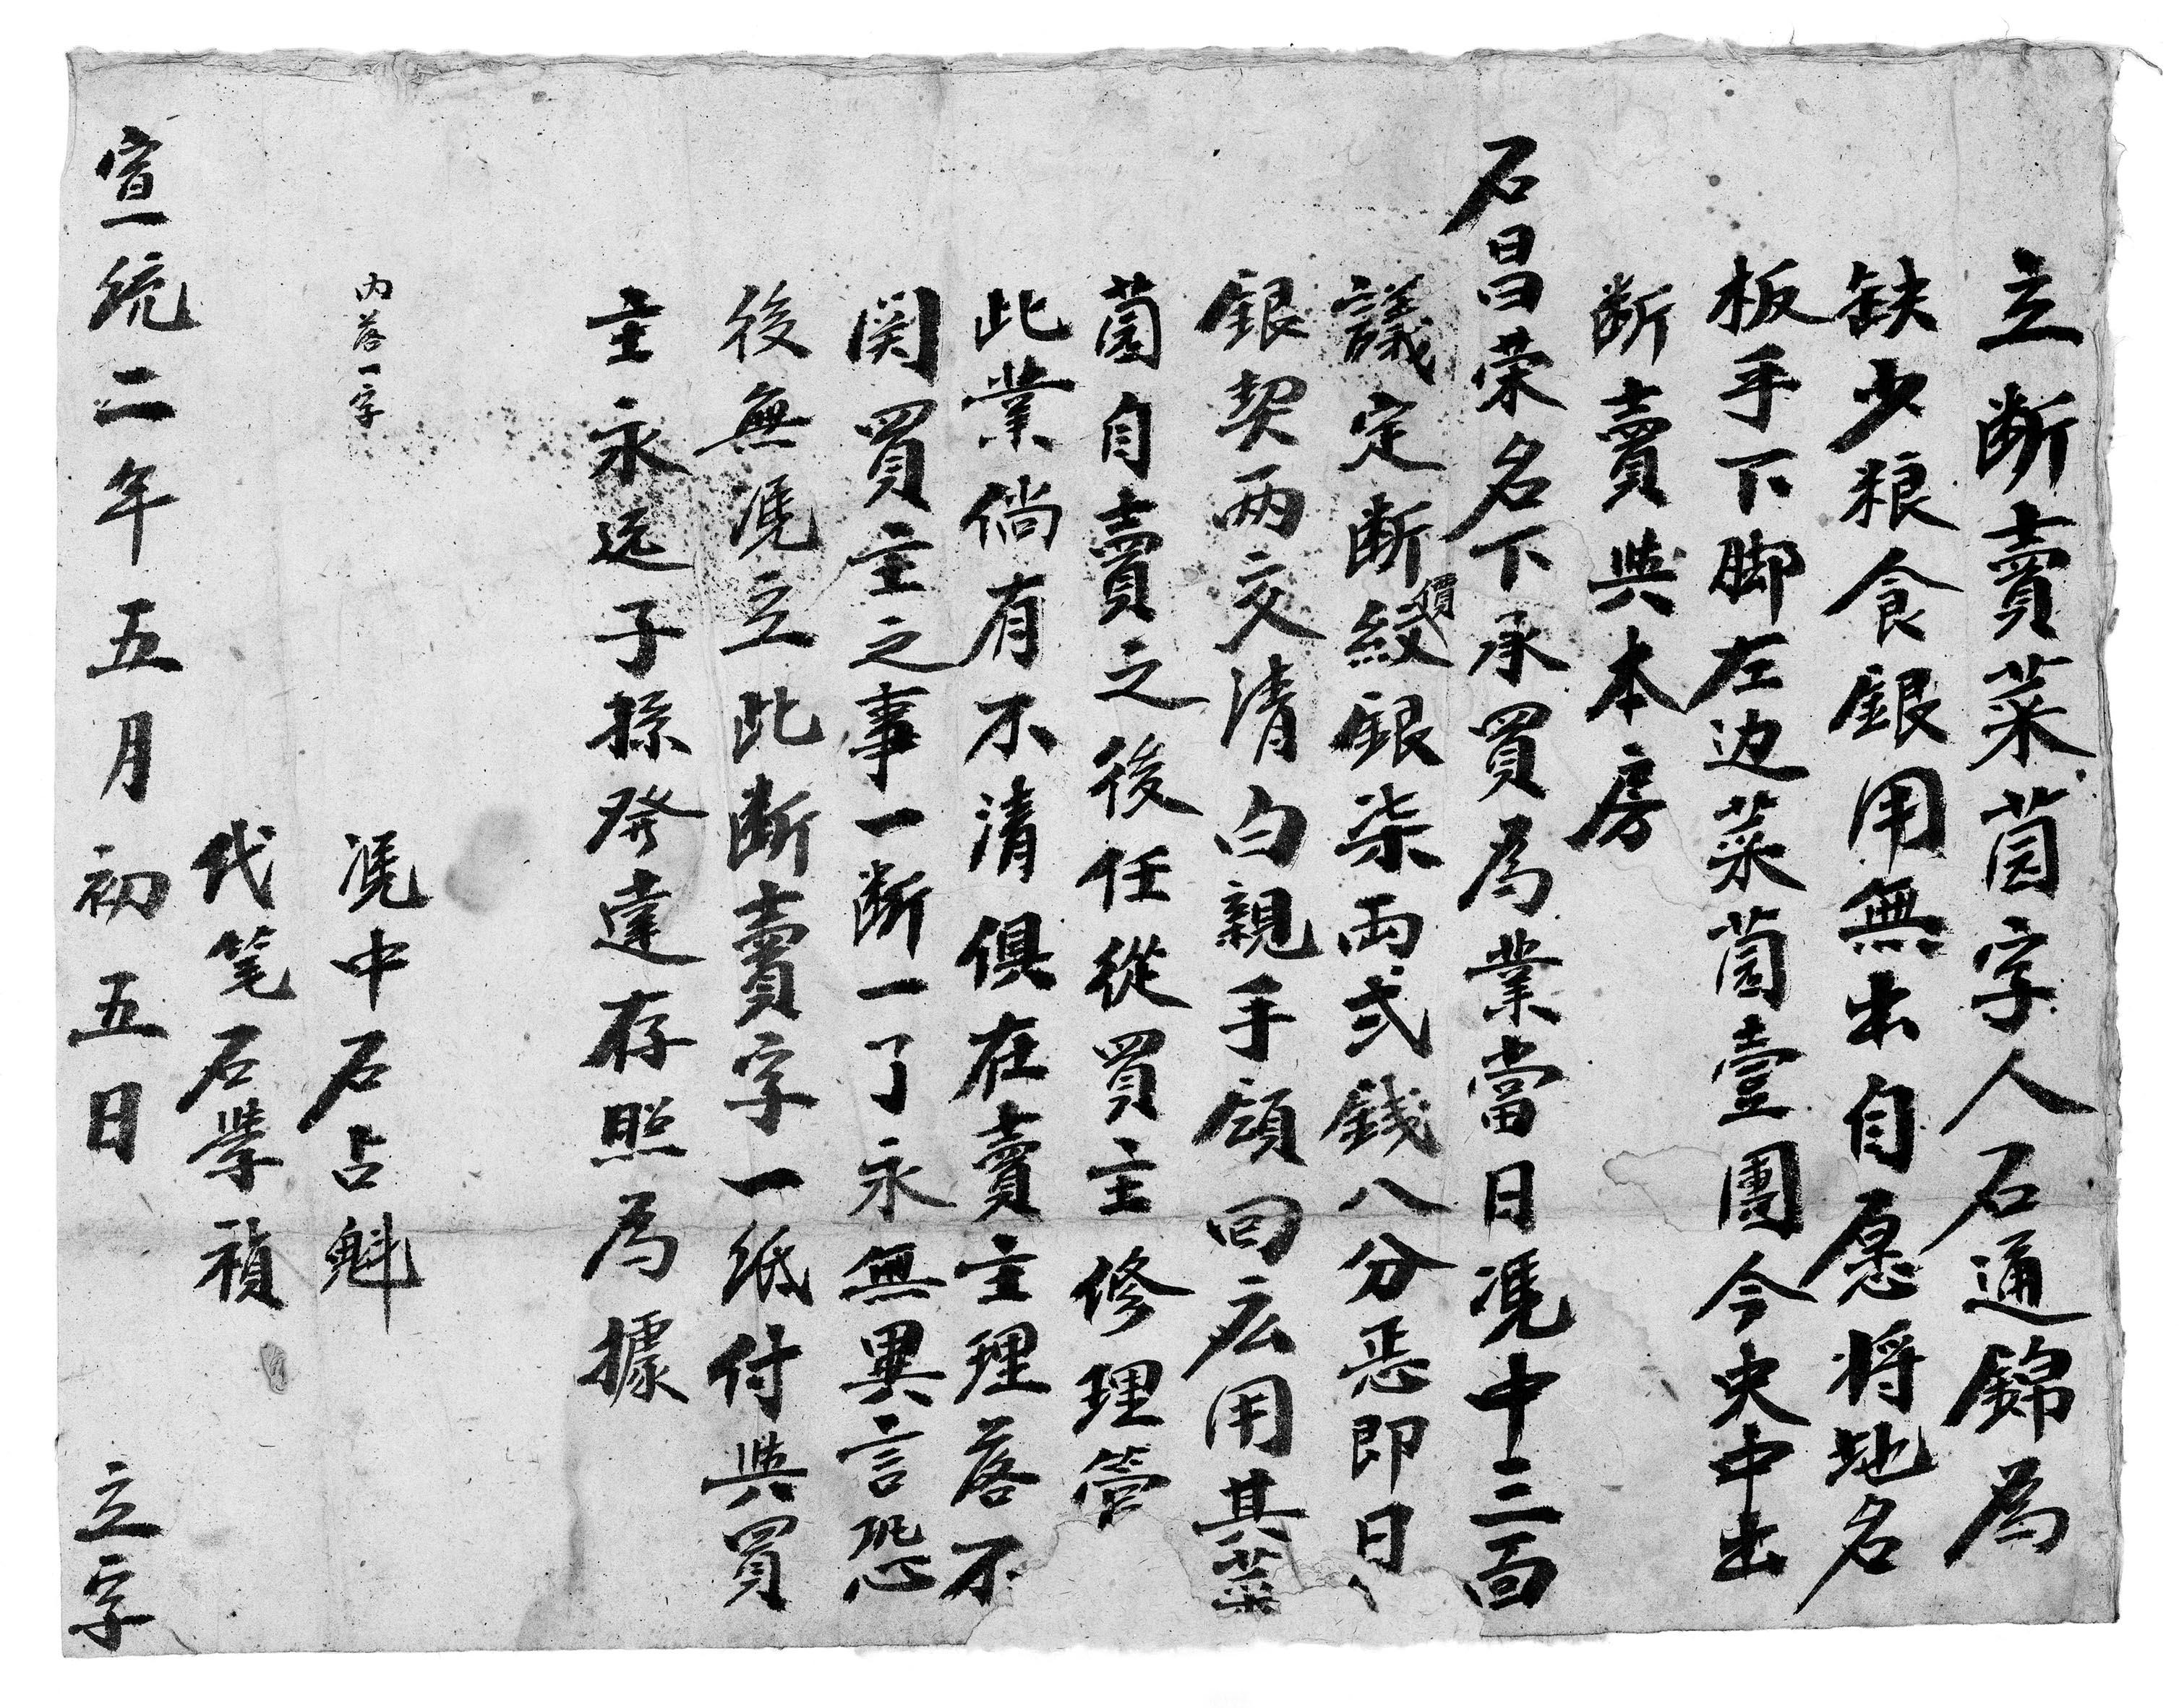 立断賣菜茵字人石通錦為
缺少粮食銀用無出自愿将地名
板手下脚左边菜茵壹團今央中出
断賣與本房
石昌荣名下承買為業當日凴中三面
議定断價紋銀柒両弍錢八分恁即日
銀契两交清白親手領回应用其菜
茵自賣之後任從買主修理管
此業倘有不清俱在賣主理落不
関買主之事一断一了永無異言恐
後無凴立此断賣字一紙付與買
主永远子孫発達存照為據
内落一字
凴中石占魁
代笔石業禎
宣統二年五月初五日 立字